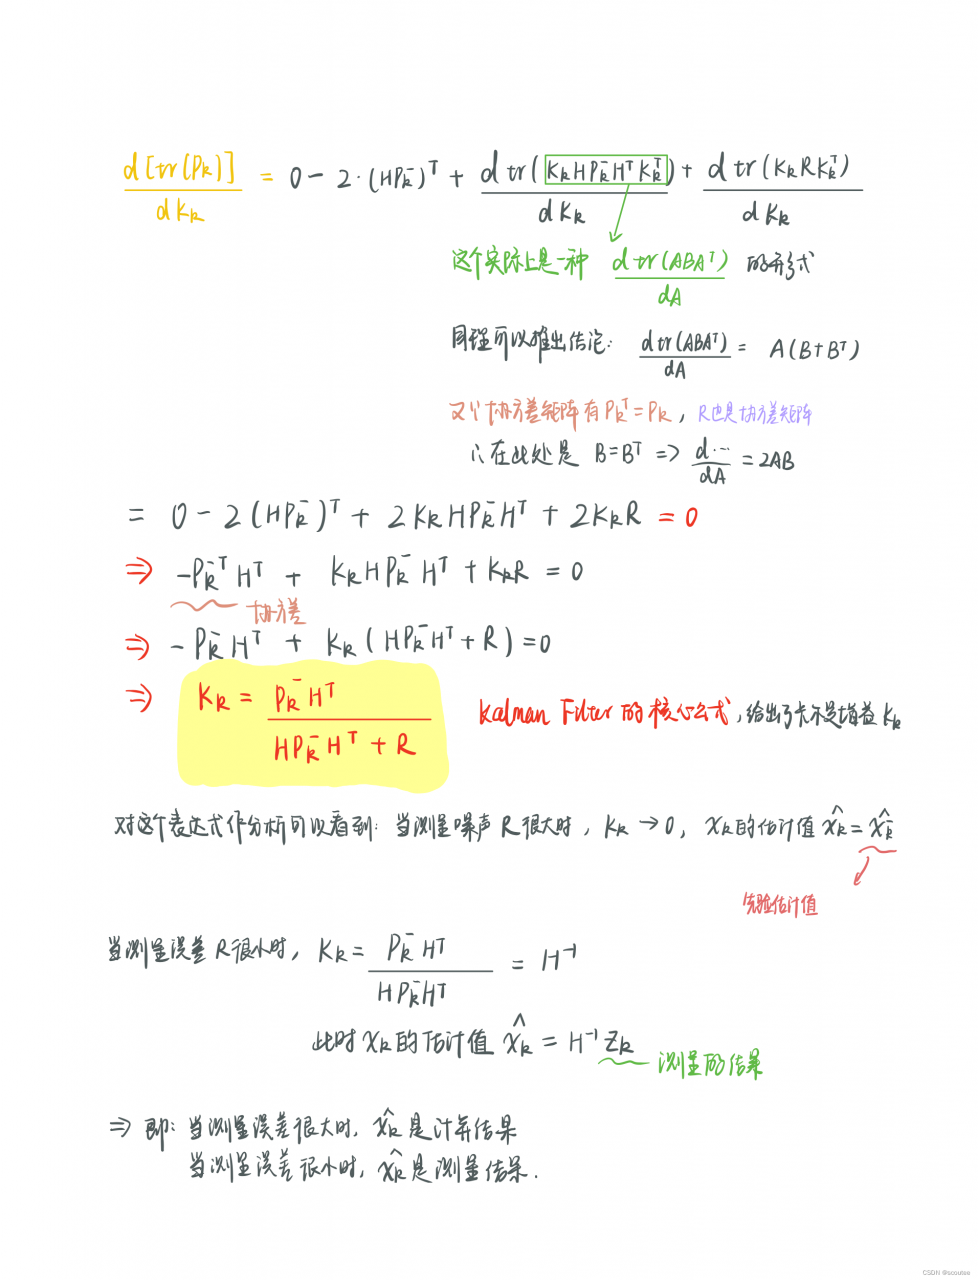 d[tr(Pₖ)]/dKₖ = 0 - 2·(HPₖ⁻)ᵀ + d tr(KₖHPₖ⁻HᵀKₖᵀ)/dKₖ + d tr(KₖRKₖᵀ)/dKₖ
这个实际上是一种 d tr(ABAᵀ)/dA 的形式
同理可以推出结论: d tr(ABAᵀ)/dA = A(B+Bᵀ)
又∵协方差矩阵有Pₖᵀ=Pₖ, R也是协方差矩阵
∴在此处是 B=Bᵀ => d…/dA = 2AB
= 0 - 2(HPₖ⁻)ᵀ + 2KₖHPₖ⁻Hᵀ + 2KₖR = 0
⇒ -Pₖ⁻ᵀHᵀ + KₖHPₖ⁻Hᵀ + KₖR = 0
协方差
⇒ -Pₖ⁻Hᵀ + Kₖ(HPₖ⁻Hᵀ+R)=0
⇒ Kₖ = Pₖ⁻Hᵀ/(HPₖ⁻Hᵀ+R) Kalman Filter的核心公式,给出了卡尔曼增益Kₖ
对这个表达式作分析可以看到: 当测量噪声R很大时, Kₖ→0, xₖ的估计值 x̂ₖ=x̂ₖ⁻
先验估计值
当测量误差R很小时, Kₖ = Pₖ⁻Hᵀ/HPₖ⁻Hᵀ = H⁻¹
此时xₖ的估计值 x̂ₖ = H⁻¹Zₖ
测量的结果
⇒ 即: 当测量误差很大时, x̂ₖ是计算结果
当测量误差很小时, x̂ₖ是测量结果.